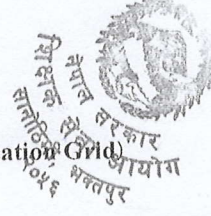 नेपाल सरकार
शिक्षक सेवा आयोग
सानोठिमी, भक्तपुर
२०५६
ation Grid)